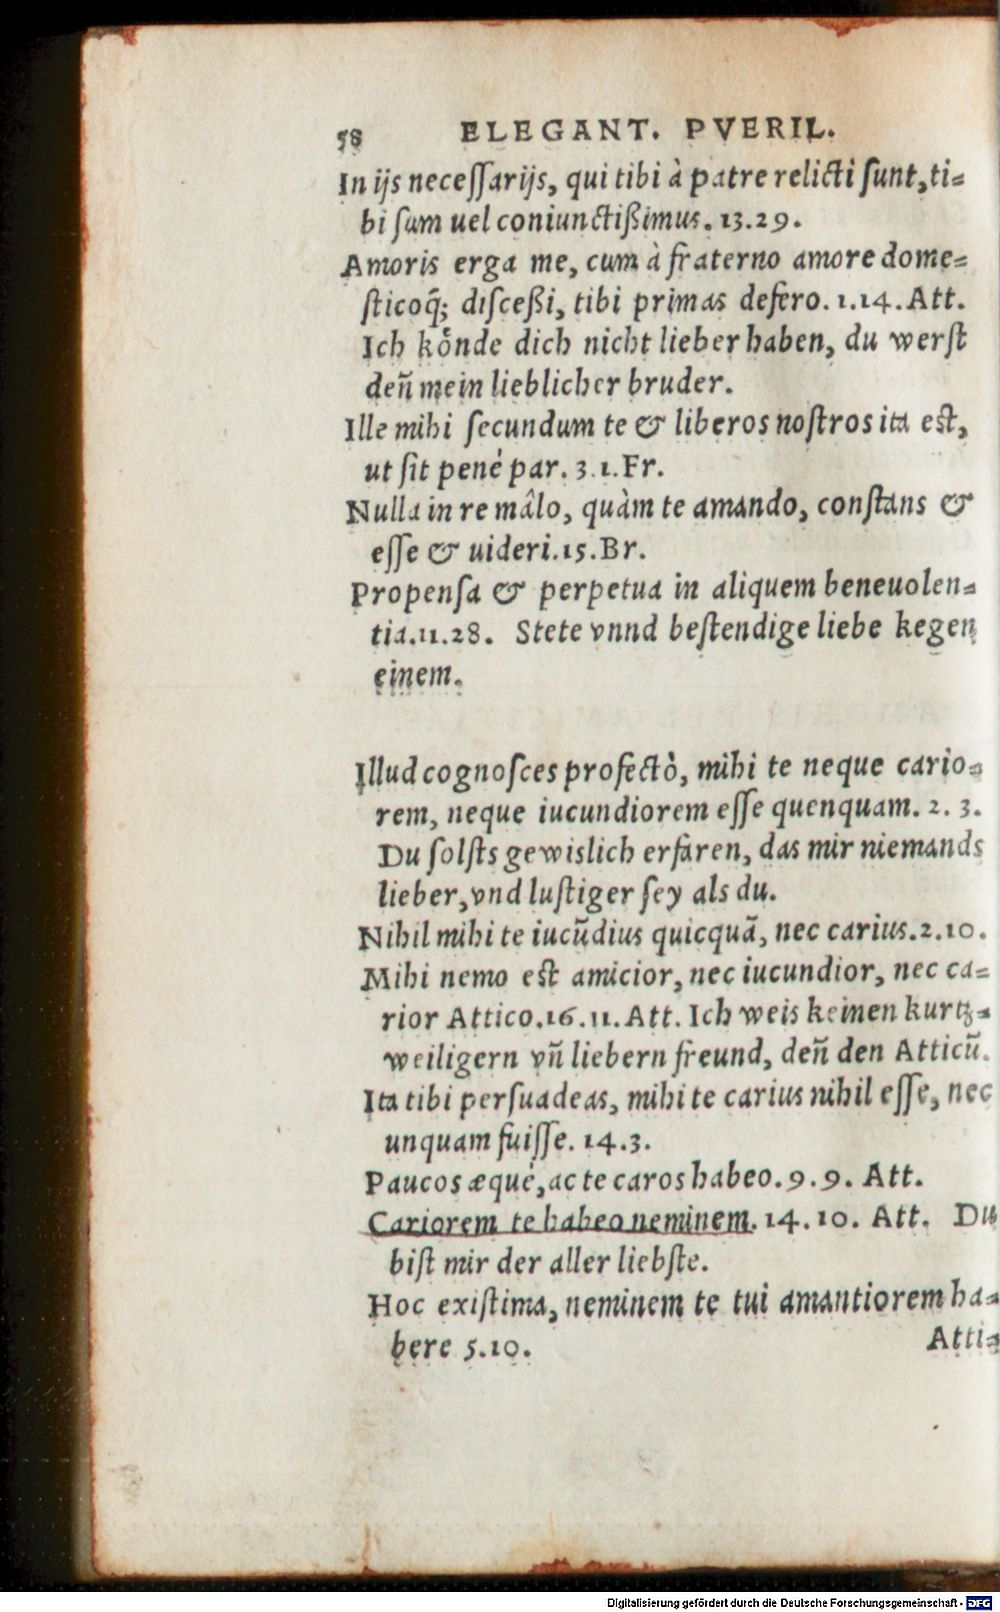 58 ELEGANT. PVERIL.
In ijs neceſſarijs, qui tibi à patre relicti ſunt, ti=
bi ſum uel coniunctißimus. 13.29.
Amoris erga me, cum à fraterno amore dome=
ſticoq́; diſceßi, tibi primas defero. 1.14. Att.
Ich koͤnde dich nicht lieber haben, du werſt
deñ mein lieblicher bruder.
Ille mihi ſecundum te & liberos noſtros ita eſt,
ut ſit penè par. 3.1. Fr.
Nulla in re mâlo, quàm te amando, conſtans &
eſſe & uideri. 15. Br.
Propenſa & perpetua in aliquem beneuolen=
tia. 11.28. Stete vnnd beſtendige liebe kegen
einem.
Illud cognoſces profectò, mihi te neque cario=
rem, neque iucundiorem eſſe quenquam. 2. 3.
Du ſolſts gewislich erfaren, das mir niemands
lieber, vnd luſtiger ſey als du.
Nihil mihi te iucũdius quicquã, nec carius. 2.10.
Mihi nemo eſt amicior, nec iucundior, nec ca=
rior Attico. 16.11. Att. Ich weis keinen kurtz=
weiligern vñ liebern freund, deñ den Atticũ.
Ita tibi perſuadeas, mihi te carius nihil eſſe, nec
unquam fuiſſe. 14.3.
Paucos æquè, ac te caros habeo. 9.9. Att.
Cariorem te habeo neminem. 14.10. Att. Du
biſt mir der aller liebſte.
Hoc exiſtima, neminem te tui amantiorem ha=
bere 5.10. Atti=
Digitalisierung gefördert durch die Deutsche Forschungsgemeinschaft - DFG